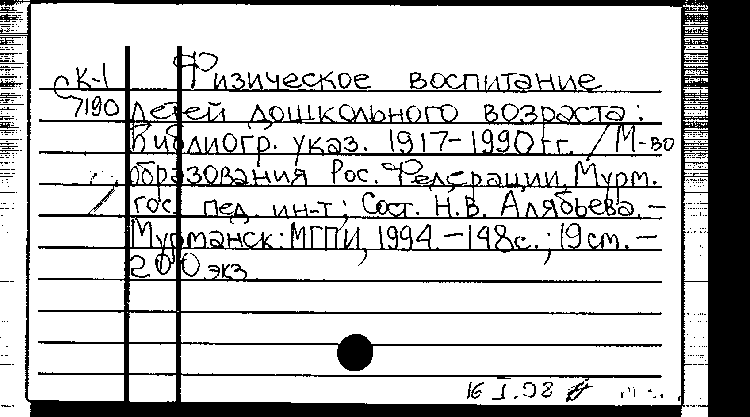 СК-1 Физическое воспитание
7190 детей дошкольного возраста:
Библиогр. указ. 1917-1990гг. / М-во
образования Рос. Федерации, Мурм.
гос. пед. ин-т; Сост. Н.В. Алябьева. –
Мурманск: МГПИ, 1994. – 148с.; 19см. –
200экз
16 I.98